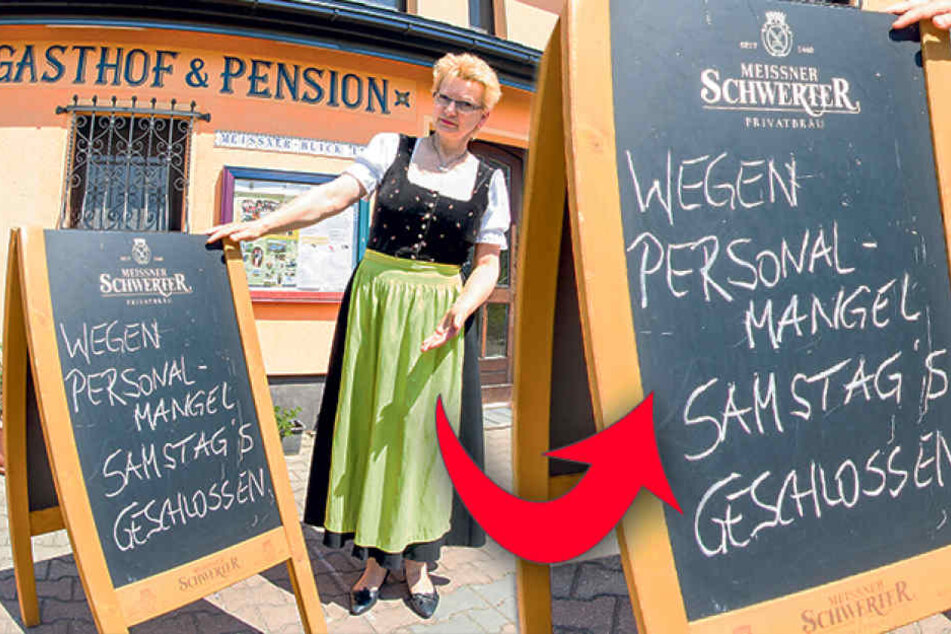 GASTHOF & PENSION
MEISSNER-BLICK
MEISSNER
SCHWERTER
PRIVATBRÄU
WEGEN
PERSONAL-
MANGEL
SAMSTAG'S
GESCHLOSSEN
MEISSNER
SCHWERTER
SEIT 1460
MEISSNER
SCHWERTER
PRIVATBRÄU
WEGEN
PERSONAL-
MANGEL
SAMSTAG'S
GESCHLOSSEN
MEISSNER
SCHWERTER